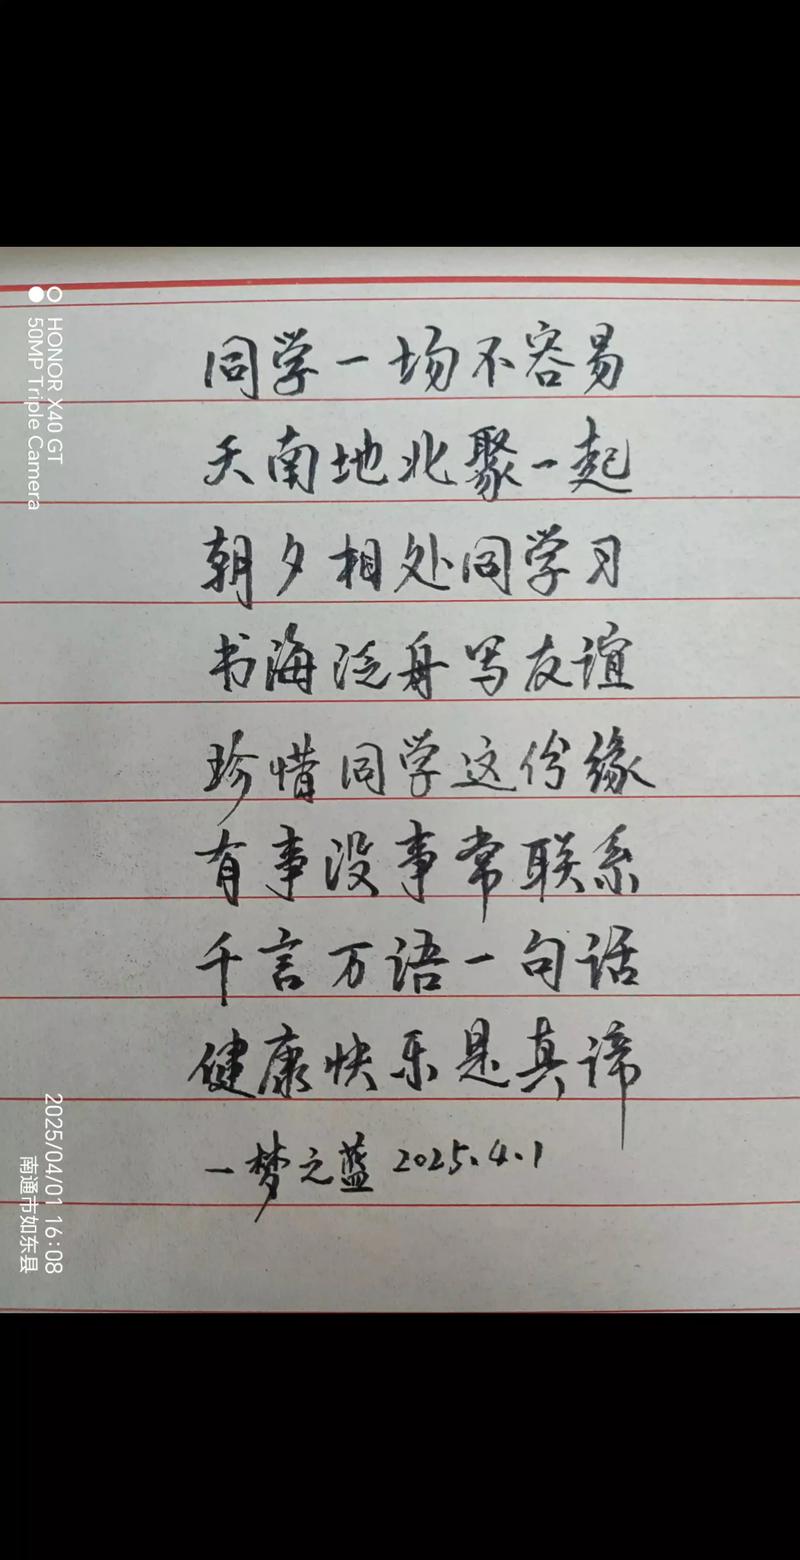 同学一场不容易
天南地北聚一起
朝夕相处同学习
书海泛舟写友谊
珍惜同学这份缘
有事没事常联系
千言万语一句话
健康快乐是真谛
一梦之蓝 2025.4.1
HONOR X40 GT
50MP Triple Camera
2025/04/01 16:08
南通市如东县